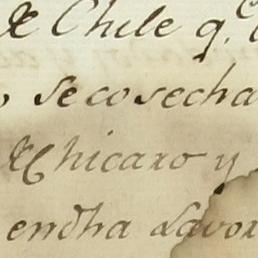 de Chile q.
secosecha
de Chicaro y
en dha Lavor